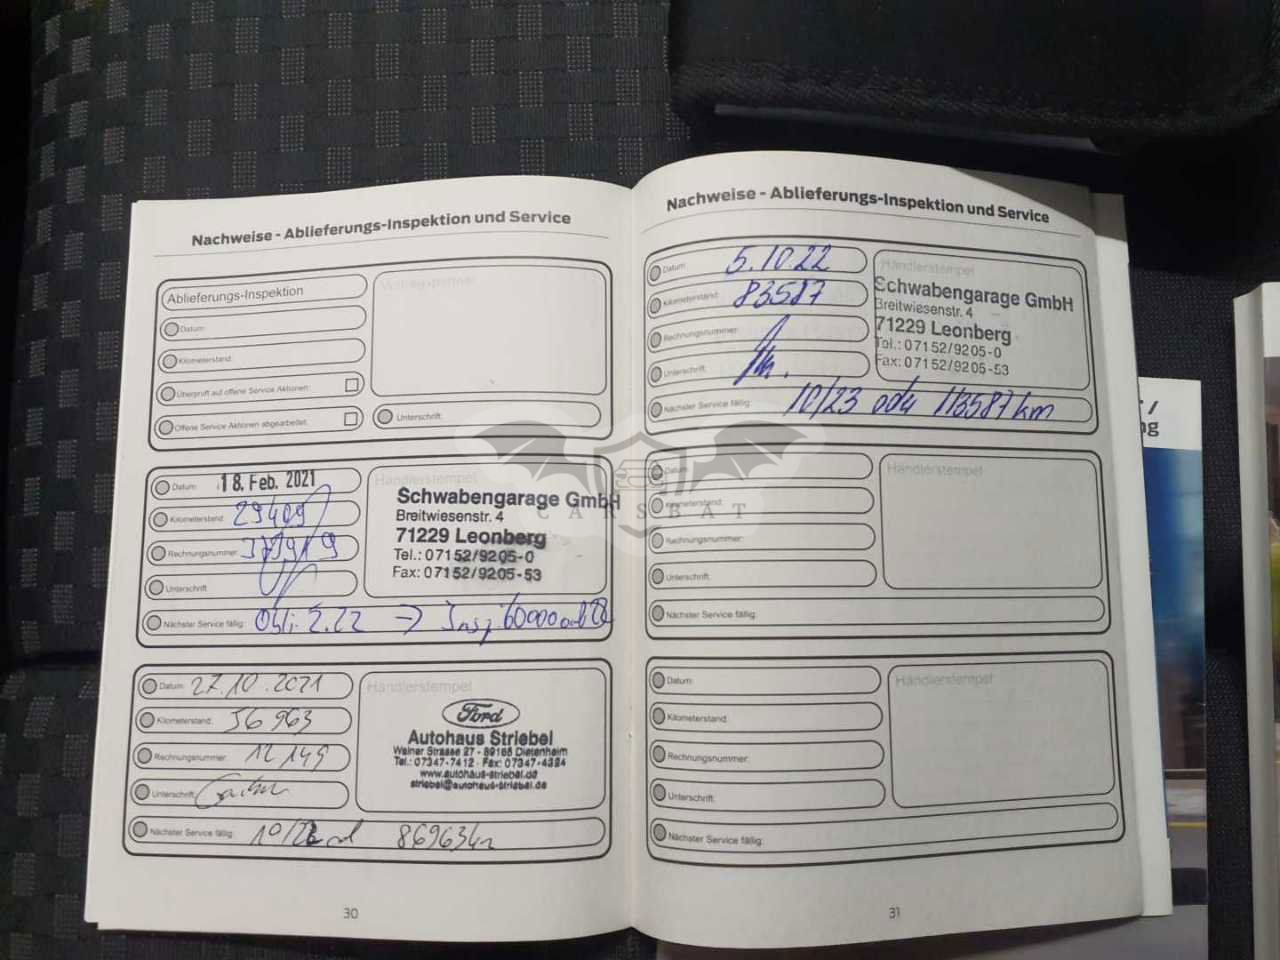 Nachweise - Ablieferungs-Inspektion und Service
Ablieferungs-Inspektion
Datum:
Kilometerstand:
Überprüft auf offene Service Aktionen:
Offene Service Aktionen abgearbeitet:
Vertragspartner
Unterschrift:
Datum: 18. Feb. 2021
Kilometerstand: 29409
Rechnungsnummer:
Unterschrift:
Nächster Service fällig:
Händlerstempel
Schwabengarage GmbH
Breitwiesenstr. 4
71229 Leonberg
Tel.: 07152/9205-0
Fax: 07152/9205-53
Datum: 27.10.2021
Kilometerstand: 56963
Rechnungsnummer: 12149
Unterschrift:
Nächster Service fällig:
Händlerstempel
Ford
Autohaus Striebel
Wainer Strasse 27 - 89165 Dietenheim
Tel.: 07347-7412 - Fax: 07347-4384
www.autohaus-striebel.de
striebel@autohaus-striebel.de
30
Nachweise - Ablieferungs-Inspektion und Service
Datum: 5.10.22
Kilometerstand: 83587
Rechnungsnummer:
Unterschrift:
Nächster Service fällig: 10/23 oder 113587 km
Händlerstempel
Schwabengarage GmbH
Breitwiesenstr. 4
71229 Leonberg
Tel.: 07152/9205-0
Fax: 07152/9205-53
Datum:
Kilometerstand:
Rechnungsnummer:
Unterschrift:
Nächster Service fällig:
Händlerstempel
Datum:
Kilometerstand:
Rechnungsnummer:
Unterschrift:
Nächster Service fällig:
Händlerstempel
31
CARSBAT